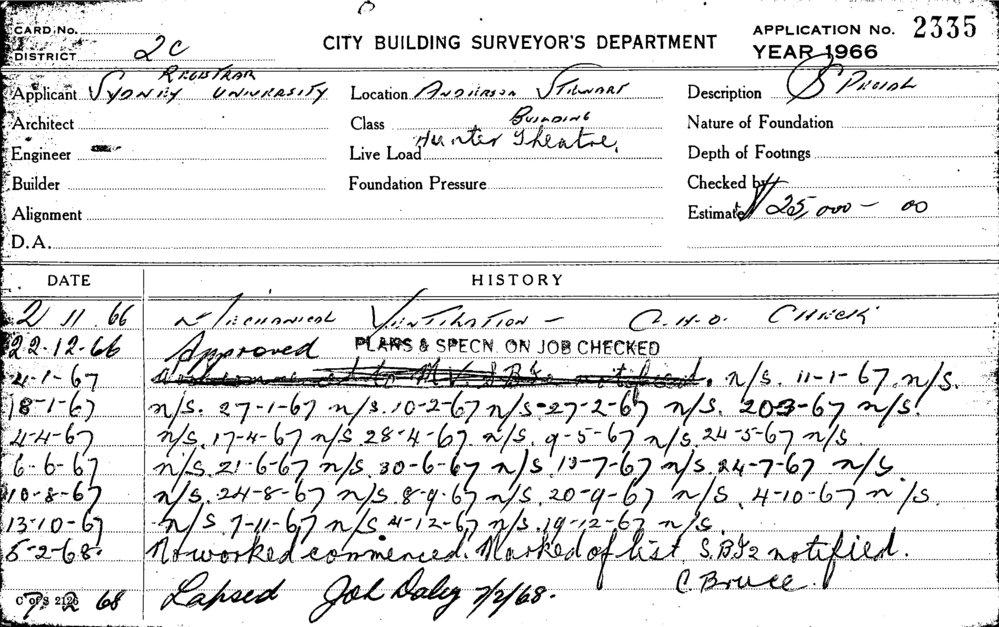 CARD No. CITY BUILDING SURVEYOR'S DEPARTMENT APPLICATION No. 2335
DISTRICT 2C YEAR 1966
REGISTRAR
Applicant SYDNEY UNIVERSITY Location ANDERSON STEWART Description SPECIAL
BUILDING
Architect Class Nature of Foundation
Hunter Theatre.
Engineer Live Load Depth of Footings
Builder Foundation Pressure Checked by
Alignment Estimate $25,000 - 00
D.A.
DATE HISTORY
2 11 66 MECHANICAL VENTILATION - C.H.O. CHECK
22-12-66 Approved PLANS & SPECN. ON JOB CHECKED
4-1-67 notified. n/s. 11-1-67. n/s.
18-1-67 n/s. 27-1-67 n/s. 10-2-67 n/s-27-2-67 n/s. 20-3-67 n/s.
4-4-67 n/s. 17-4-67 n/s 28-4-67 n/s. 9-5-67 n/s. 24-5-67 n/s.
6-6-67 n/s. 21-6-67 n/s. 30-6-67 n/s. 13-7-67 n/s. 24-7-67 n/s.
10-8-67 n/s. 24-8-67 n/s. 8-9-67 n/s. 20-9-67 n/s. 4-10-67 n/s.
13-10-67 n/s 7-11-67 n/s 4-12-67 n/s. 19-12-67 n/s.
5-2-68. No worked commenced. Marked of list S.B.I2 notified.
C. Bruce.
7 2 68 Lapsed Joh Daley 7/2/68.
C of S 2126